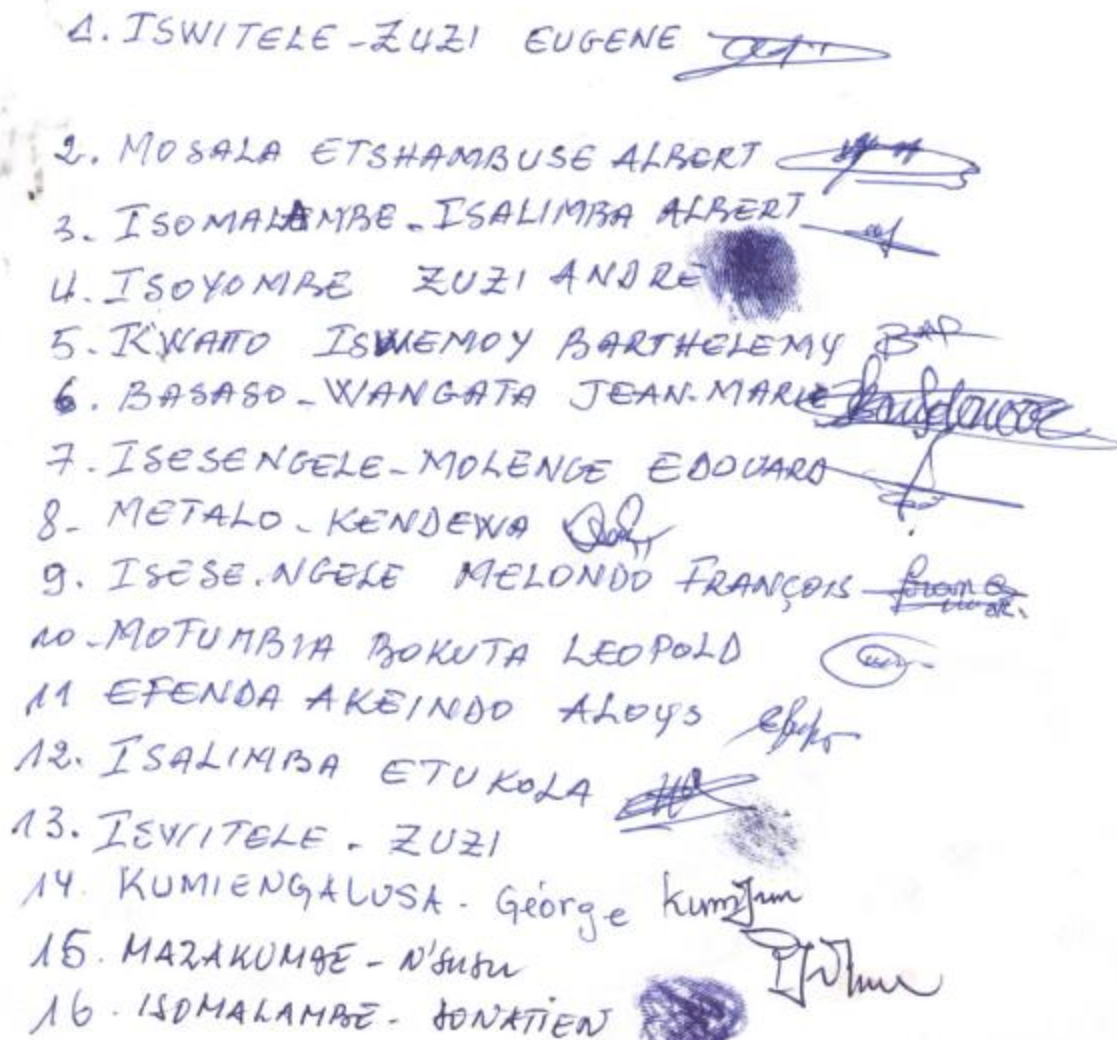 1. ISWITELE-ZUZI EUGENE
2. MOSALA ETSHAMBUSE ALBERT
3. ISOMALAMBE-ISALIMBA ALBERT
4. ISOYOMBE ZUZI ANDRE
5. KWATTO ISWEMOY BARTHELEMY BAP
6. BASASO-WANGATA JEAN-MARIE
7. ISESENGELE-MOLENGE EDOUARD
8- METALO-KENDEWA
9. ISESE.NGELE MELONDO FRANÇOIS
10-MOTUMBIA BOKUTA LEOPOLD
11 EFENDA AKEINDO ALOYS
12. ISALIMBA ETUKOLA
13. ISWITELE. ZUZI
14. KUMIENGALUSA. Géorge
15. MAZAKUMBE-N'susu
16. ISOMALAMBE-DONATIEN